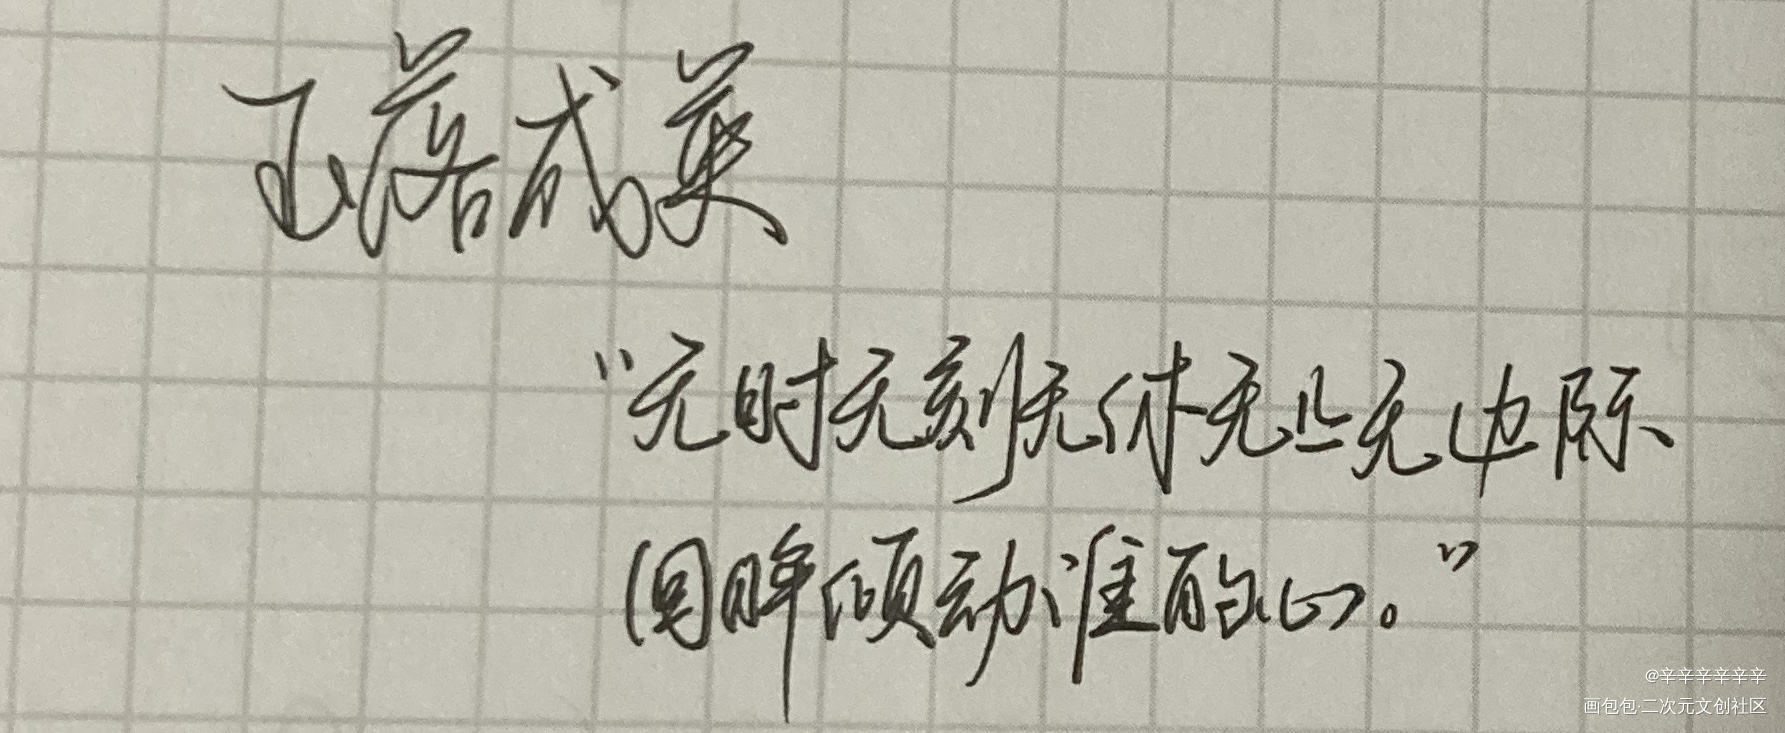 玉落成美
“无时无刻无休无止无边际
回眸倾动谁的心。”
@辛辛辛辛辛辛
画包包·二次元文创社区